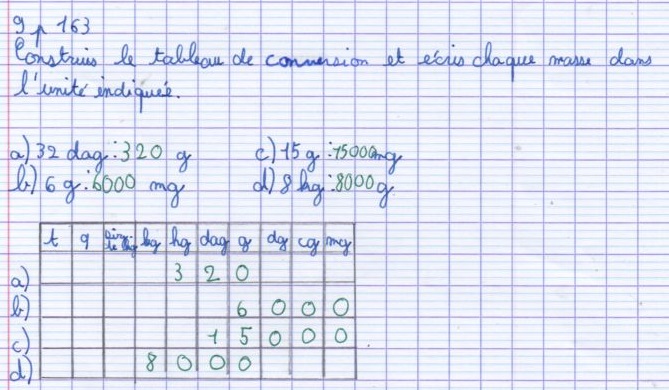 9 p 163
Construis le tableau de conversion et écris chaque masse dans
l'unité indiquée.
a) 32 dag : 320 g c) 15 g : 15000mg
b) 6 g : 6000 mg d) 8 kg : 8000 g
t q kg hg dag g dg cg mg
a) 3 2 0
b) 6 0 0 0
c) 1 5 0 0 0
d) 8 0 0 0